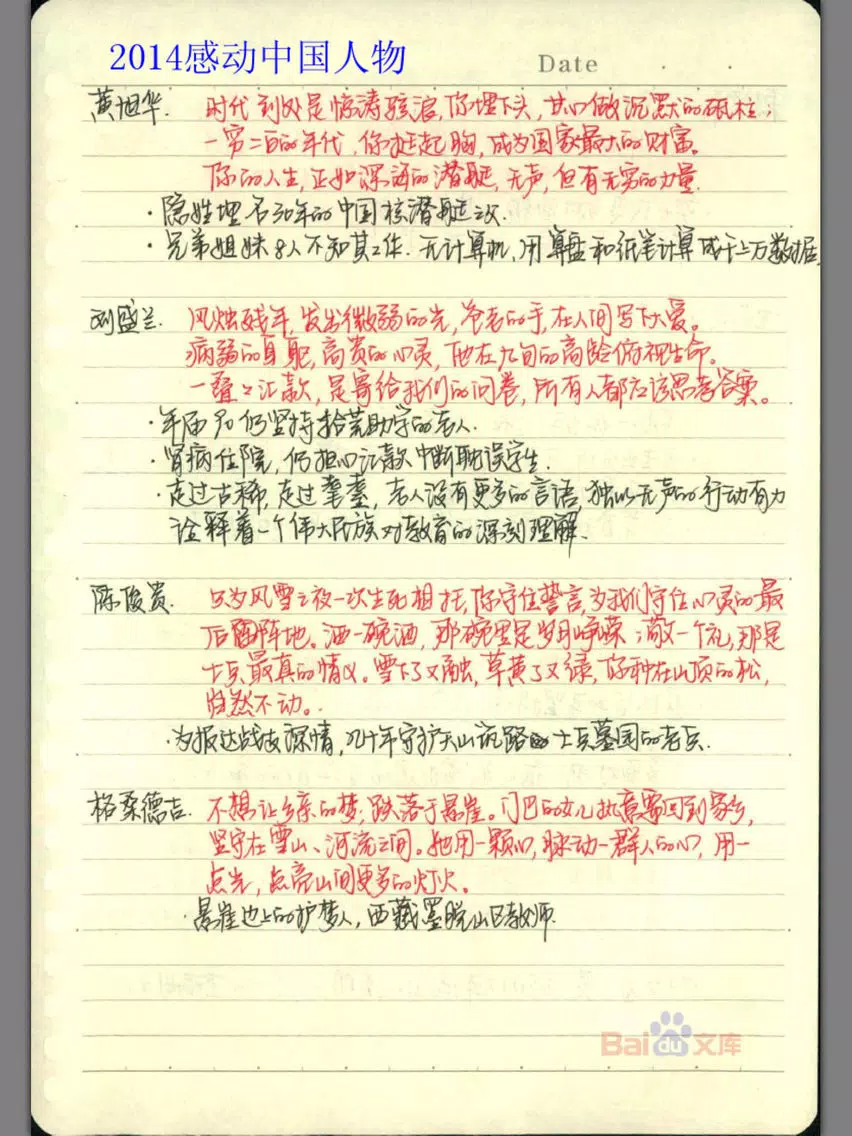 2014感动中国人物
Date
黄旭华. 时代到处是惊涛骇浪,你埋下头,甘心做沉默的砥柱;
一穷二白的年代,你挺起胸,成为国家最大的财富。
你的人生,正如深海的潜艇,无声,但有无穷的力量.
·隐姓埋名30年的中国核潜艇之父.
·兄弟姐妹8人不知其工作.无计算机,用算盘和纸笔计算成千上万数据.
刘盛兰. 风烛残年,发出微弱的光,苍老的手,在人间写下大爱。
病弱的身躯,高贵的心灵,他在九旬的高龄俯视生命。
一叠叠汇款,是寄给我们的问卷,所有人都应该思考答案。
·年届90仍坚持拾荒助学的老人.
·肾病住院,仍担心汇款中断耽误学生.
·走过古稀,走过耄耋,老人没有更多的言语,独以无声的行动有力
诠释着一个伟大民族对教育的深刻理解.
陈俊贵. 只为风雪之夜一次生死相托,你守住誓言,为我们守住心灵的最
后阵地。洒一碗酒,那碗里是岁月峥嵘;敬一个礼,那是
士兵最真的情义。雪下了又融,草黄了又绿,你种在山顶的松,
岿然不动。
·为报达战友深情,几十年守护天山筑路士兵墓园的老兵.
格桑德吉. 不想让乡亲的梦,跌落于悬崖。门巴的女儿执意要回到家乡,
坚守在雪山、河流之间。她用一颗心,脉动一群人的心,用一
点光,点亮山间更多的灯火。
·悬崖边上的护梦人,西藏墨脱山区教师.
Baidu文库